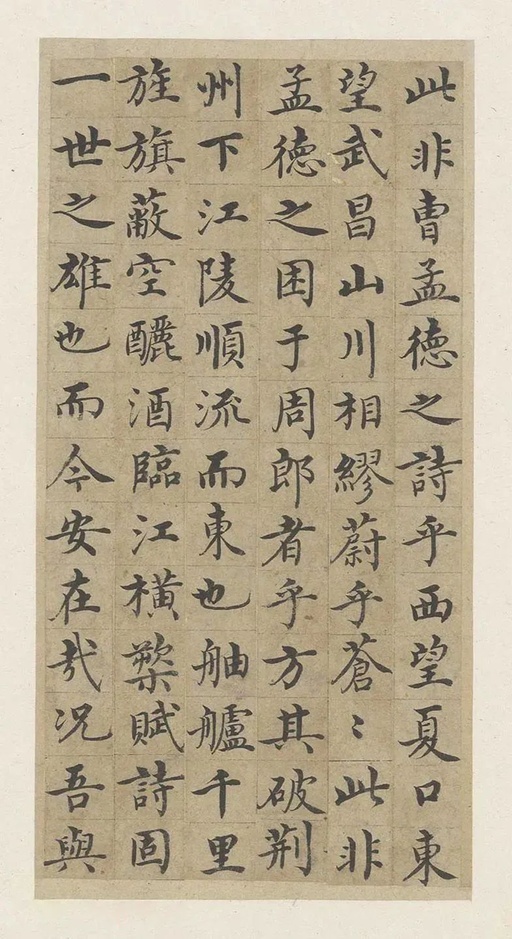 此非曹孟德之詩乎西望夏口東
望武昌山川相繆蔚乎蒼〻此非
孟德之困于周郎者乎方其破荆
州下江陵順流而東也舳艫千里
旌旗蔽空釃酒臨江橫槊賦詩固
一世之雄也而今安在哉況吾與